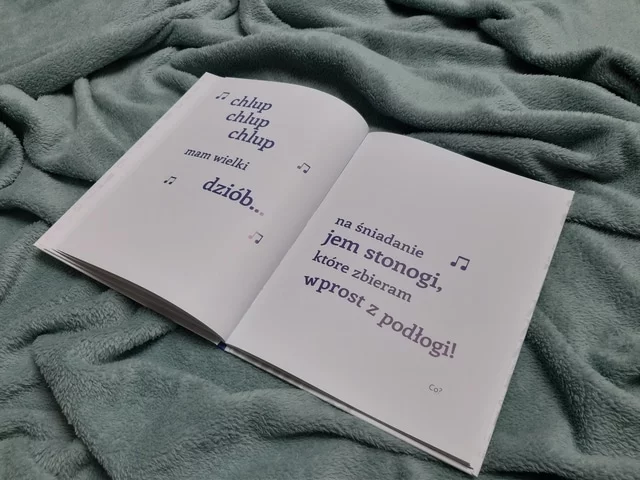 chlup
chlup
chlup
mam wielki
dziób...
na śniadanie
jem stonogi,
które zbieram
wprost z podłogi!
Co?